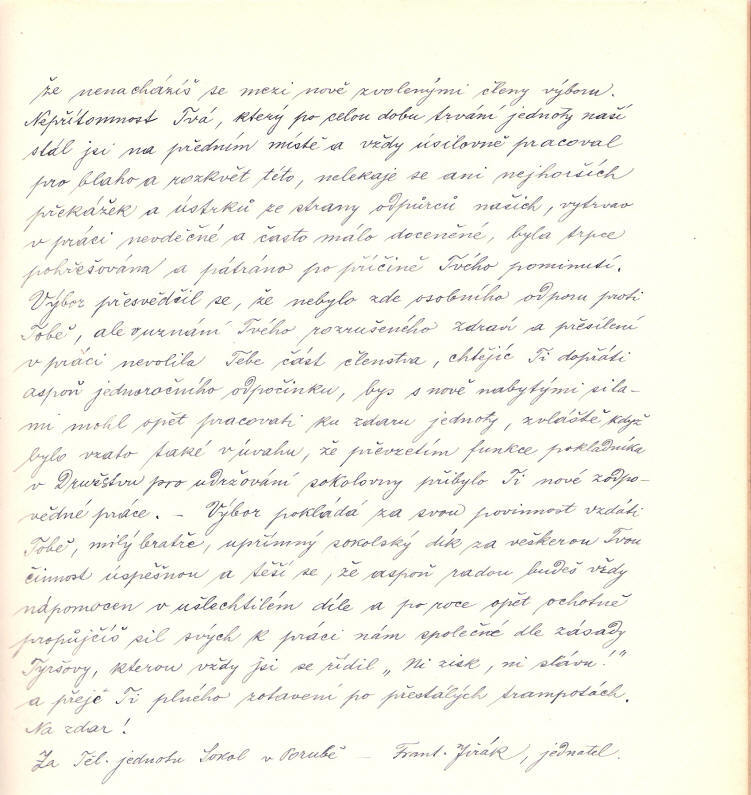 že nenacházíš se mezi nově zvolenými členy výboru.
Nepřítomnost Tvá, který po celou dobu trvání jednoty naší
stál jsi na předním místě a vždy úsilovně pracoval
pro blaho a rozkvět této, nelekaje se ani nejhorších
překážek a ústrků ze strany odpůrců našich, vytrvav
v práci nevděčné a často málo doceněné, byla trpce
pohřešována a pátráno po příčině Tvého pominutí.
Výbor přesvědčil se, že nebylo zde osobního odporu proti
Tobě, ale v uznání Tvého rozrušeného zdraví a přesílení
v práci nevolila Tebe část členstva, chtějíc Ti dopřáti
aspoň jednoročního odpočinku, bys s nově nabytými sila-
mi mohl opět pracovati ku zdaru jednoty, zvláště když
bylo vzato také v úvahu, že převzetím funkce pokladníka
v Družstvu pro udržování sokolovny přibylo Ti nové zodpo-
vědné práce. – Výbor pokládá za svou povinnost vzdáti
Tobě, milý bratře, upřímný sokolský dík za veškerou Tvou
činnost úspěšnou a těší se, že aspoň radou budeš vždy
nápomocen v ušlechtilém díle a po roce opět ochotně
propůjčíš sil svých k práci nám společné dle zásady
Tyršovy, kterou vždy jsi se řídil „Ni zisk, ni slávu!"
a přeje Ti plného zotavení po přestálých trampotách.
Na zdar!
Za Těl. jednotu Sokol v Porubě – Frant. Jirák, jednatel.